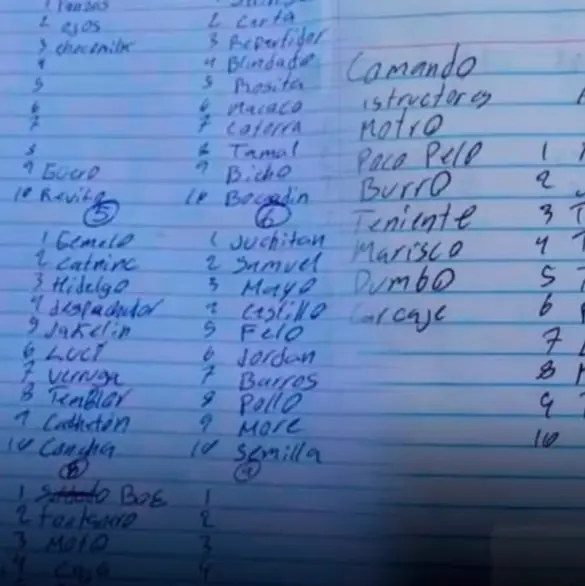 2 ojos
3 chocomilk
4
5
6
7
8
9 Guero
10
5
1 Gemelo
2 Catrinc
3 Hidelgo
4 despachador
5 Jakelin
6 Luci
7 Verruga
8 Temblor
9
10 Concha
8
1 Bob
2
3 Moto
4
2 Carta
3 Repartidor
4 Blindado
5 Rosita
6 Macaco
7 Catorra
8 Tamal
9 Bicho
10 Bocadin
6
1 Juchitan
2 Samuel
3 Mayo
4 Castillo
5 Felo
6 Jordan
7 Barros
8 Pollo
9 More
10 Semilla
9
1
2
3
4
Comando
istructores
Motro
Poco Pelo
Burro
Teniente
Marisco
Dumbo
Carcaje
1
2
3
4
5
6
7
8
9
10